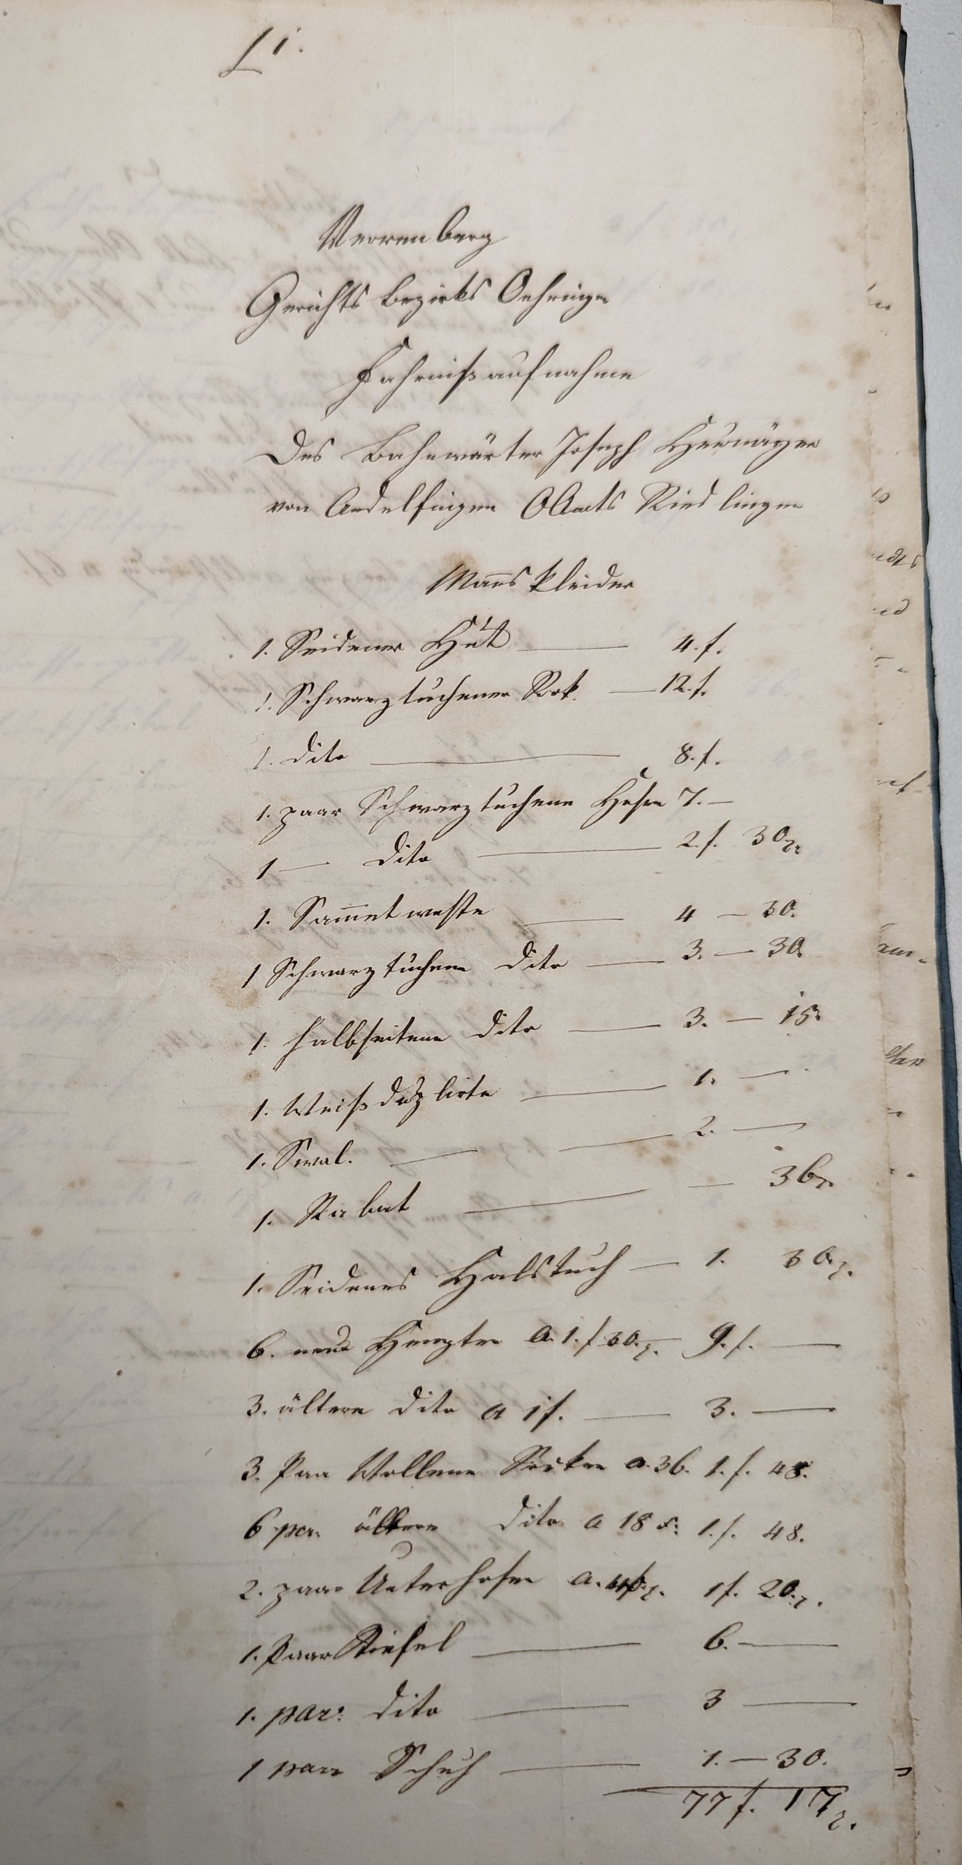 Li.
Verrenberg
Gerichts bezirks Oehringen
Fahrnißaufnahme
Des Bahnwärter Joseph
von Andelfingen OAmts Riedlingen
Manskleider
1. Seidener Hut — 4. f.
1. Schwarz tuchener Rok. — 12. f.
1. dito — 8. f.
1. paar Schwarz tuchene Hosen 7. —
1 — dito — 2. f. 30 x.
1. Sam̄et weste — 4 — 30.
1 Schwarz tuchene dito — 3. — 30.
1. halbseitene dito — 3. — 15.
1. Weiß — 1. —
1. Swal. — 2. —
1. Rabat — — 36 x.
1. Seidenes Halstuch — 1. 30 x.
6. neue Hempter a. 1. f 30. x. — 9. f. —
3. ältere dito a 1 f. — 3. —
3. Paar Wollene Socken a. 36. 1. f. 48.
6 par. ältere dito a 18 x. 1. f. 48.
2. paar Unterhosen a. 40 x. 1 f. 20. x.
1. Paar Stiefel — 6. —
1. par: dito — 3 —
1 paar Schuh — 1. — 30.
77 f. 17 x.